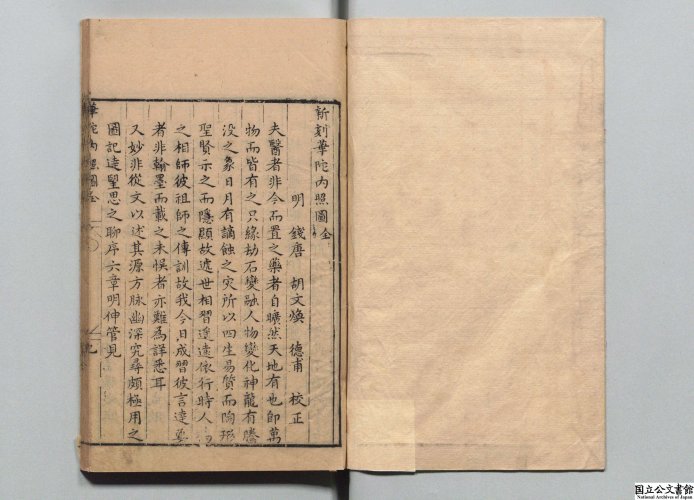 新刻華陀内照圖全
明 錢唐 胡文煥 德甫 校正
夫醫者非今而置之藥者自曠然天地有也即萬
物而皆有之只緣劫石變融人物變化神龍有騰
没之象日月有謫蝕之灾所以四生易質而陶
聖賢示之而隱顯故遞世相習遥遠依行時人
之相師彼祖師之傳訓故我今日成習彼言達
者非翰墨而載之未悮者亦難為詳悉耳
又妙非從文以述其源方脉幽深究尋頗極用之
圖記達聖思之聊序六章明伸管見
華陀内照圖全
國立公文書館
National Archives of Japan